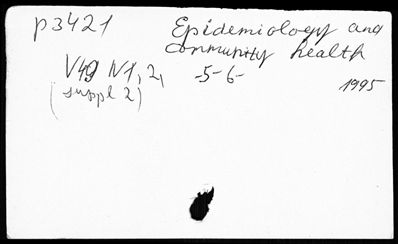 p3421 Epidemiology and
community health
V49 N1, 2, -5-6-
(suppl 2) 1995